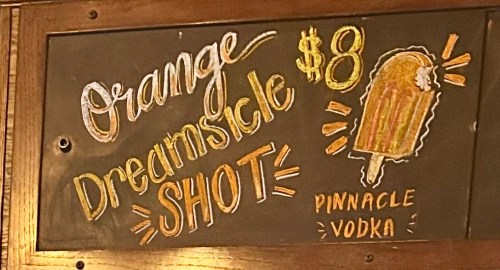 Orange
Dreamsicle
SHOT
$8
PINNACLE
VODKA